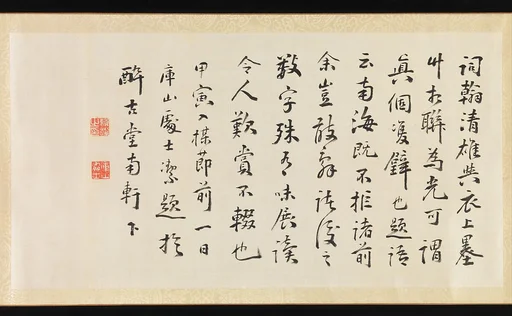 詞翰清雄與衣上墨
竹相聯為光可謂
真個双璧也題語
云南海既不拒諸前
余豈敢辞諸後之
数字殊有味展讀
令人歎賞不輟也
甲寅入楳節前一日
庫山處士潔題於
醉古堂南軒下